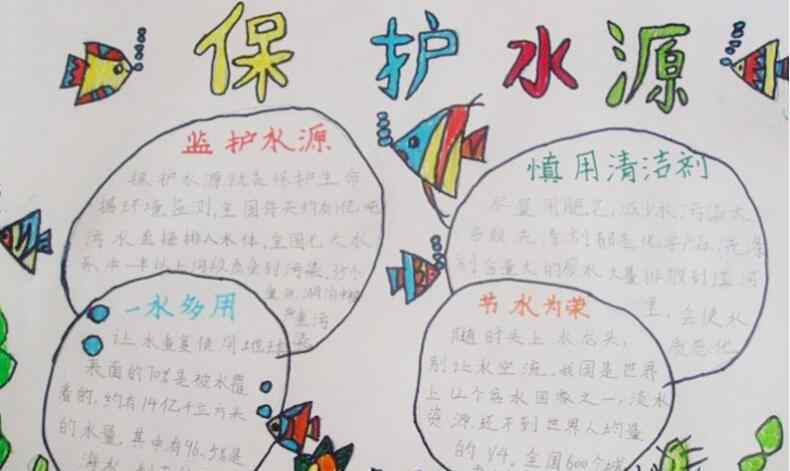 保护水源
监护水源
保护水源就是保护生命
据环境监测,全国每天约有亿吨
污水直接排入水体,全国七大水
系中一半以上河段水质受到污染,35个
重点湖泊中
严重污
染
慎用清洁剂
尽量用肥皂,减少水污染大
多数洗涤剂都是化学产品,洗涤
剂含量大的废水大量排放到江河
里,会使水
质恶化
一水多用
让水重复使用地球
表面的70%是被水覆
着的,约有14亿千立方米
的水量,其中有96.5%是
海水
节水为荣
随时关上水龙头,
别让水空流,我国是世界
上12个贫水国家之一,淡水
资源还不到世界人均量
的1/4,全国600个城